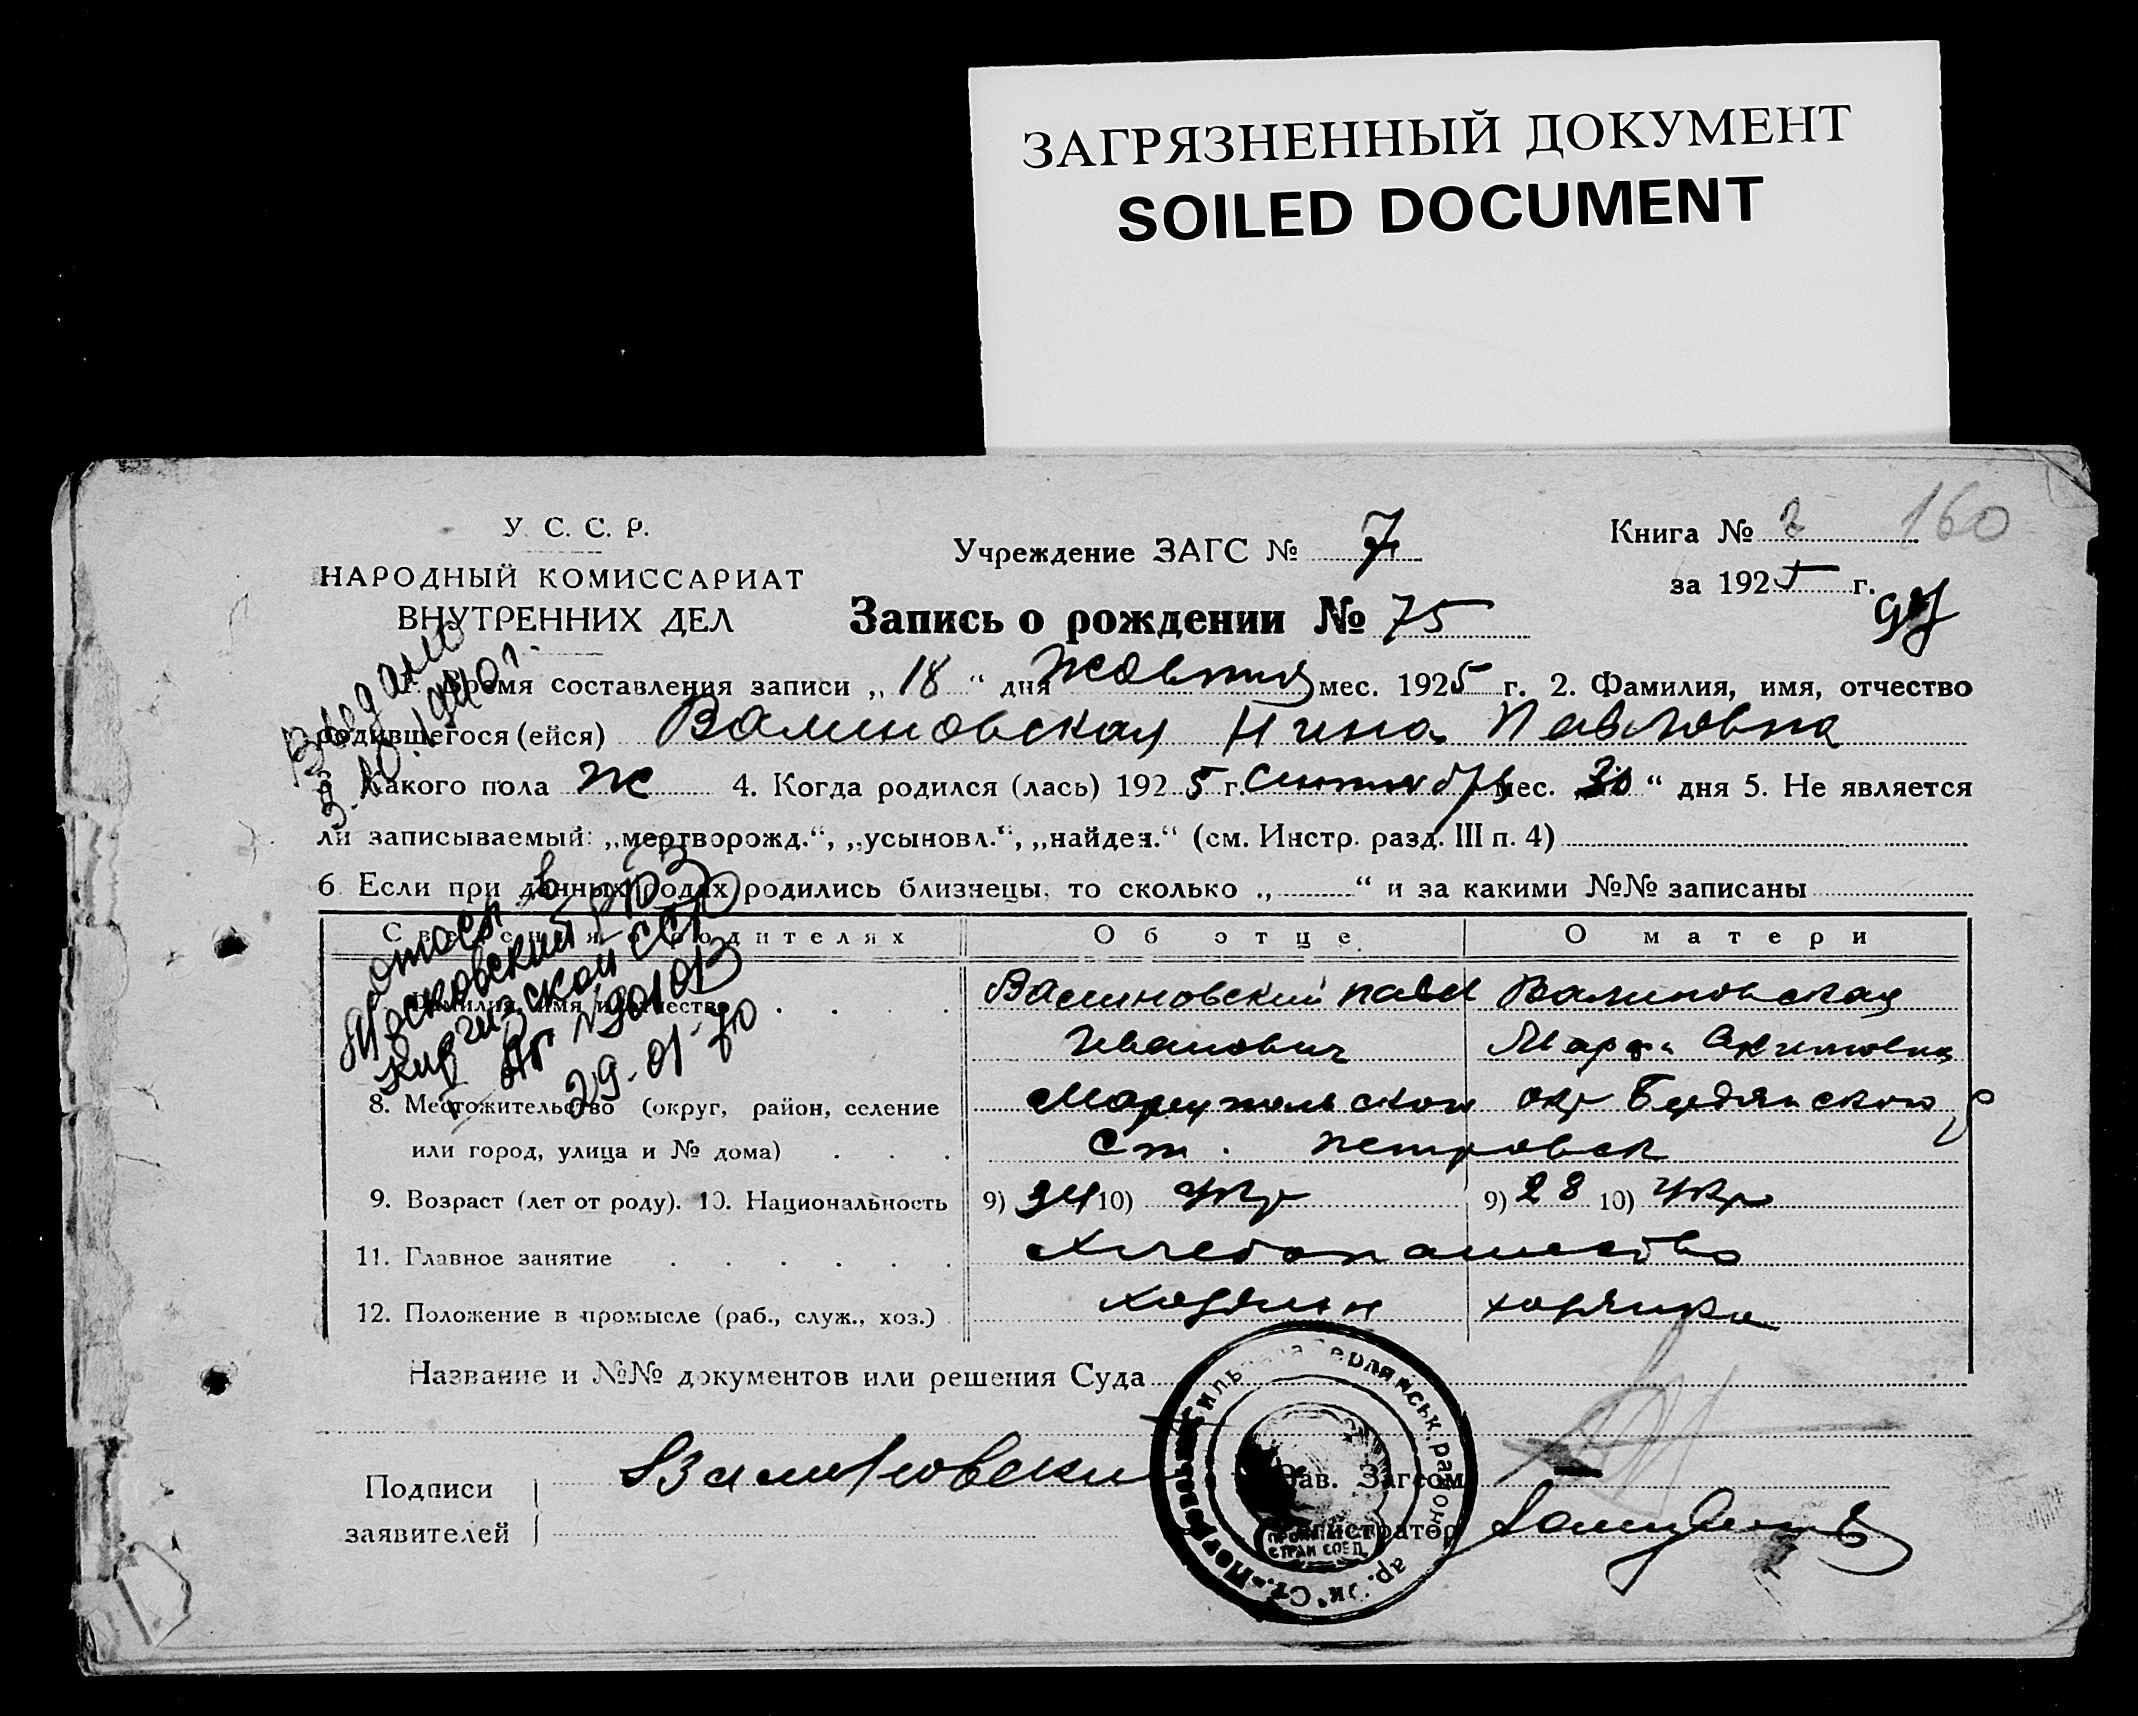 ЗАГРЯЗНЕННЫЙ ДОКУМЕНТ
SOILED DOCUMENT
У. С. С. Р.
НАРОДНЫЙ КОМИССАРИАТ
ВНУТРЕННИХ ДЕЛ
Учреждение ЗАГС № 7
Книга № 2 160
за 1925 г.
Запись о рождении № 75
Время составления записи „18“ дня Жовтня мес. 1925 г. 2. Фамилия, имя, отчество
родившегося (ейся) Валиновская Нина Павловна
Какого пола ж 4. Когда родился (лась) 1925 г. сентября мес. 30 “ дня 5. Не является
ли записываемый: „мертворожд.“, „усыновл.“, „найден.“ (см. Инстр. разд. III п. 4)
6 Если при данных родах родились близнецы, то сколько „ “ и за какими №№ записаны
Сведения о родителях Об отце О матери
Фамилия, имя и отчество Валиновский Павел Валиновская
Иванович Марфа Акимовна
8. Местожительство (округ, район, селение Мариупольской окр Бердянского р
или город, улица и № дома) Ст. Петровск
9. Возраст (лет от роду). 10. Национальность 9) 34 10) Укр 9) 28 10) Укр
11. Главное занятие Хлебопашество
12. Положение в промысле (раб., служ., хоз.) хозяин хозяйка
Название и №№ документов или решения Суда
Подписи Валиновский Зав. Загсом
заявителей Регистратор
Выдано
9.10.1940 г.
в
Московский РОВД
Киргизской ССР
№ 901013
29-01-70
ПРОЛЕТ
СТРАН СОЕД.